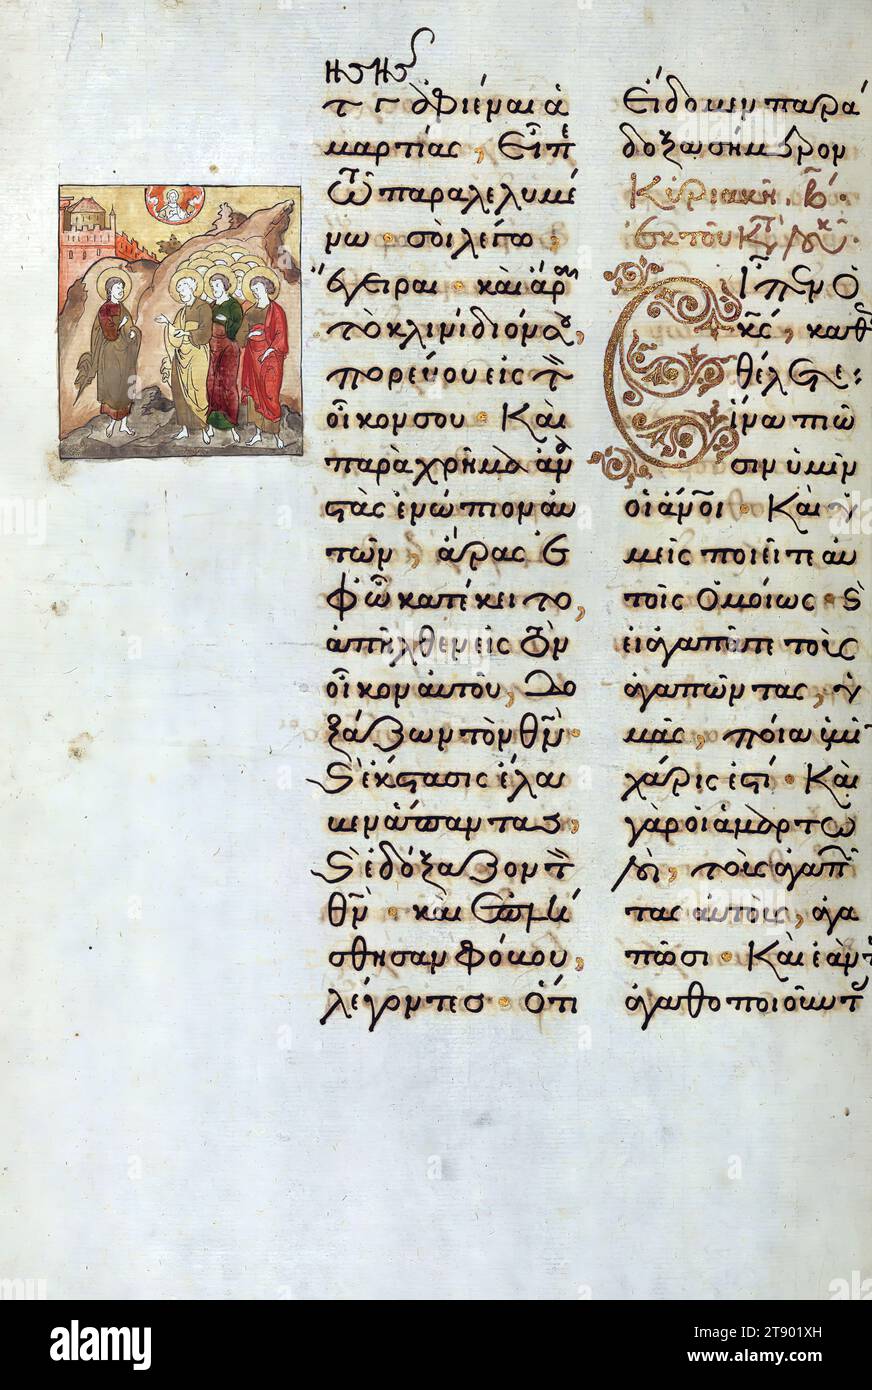 ἀφιέναι ἁ
μαρτίας, εἶπε
τῷ παραλελυμέ
νω· σοὶ λέγω,
ἔγειραι· καὶ ἆρον
τὸ κλινίδιόν σου,
πορεύου εἰς τὸν
οἶκόν σου· Καὶ
παραχρῆμα ἀνα
στὰς ἐνώπιον αὐ
τῶν, ἄρας ἐ
φ ᾧ κατέκειτο,
ἀπῆλθεν εἰς τὸν
οἶκον αὐτοῦ, δο
ξάζων τὸν θν·
καὶ ἔκστασις ἔλαβ
εν ἅπαντας,
καὶ ἐδόξαζον τὸν
θν· καὶ ἐπλή
σθησαν φόβου,
λέγοντες· ὅτι
Εἴδομεν παρά
δοξα σήμερον
Κυριακῇ β·
ἐκ τοῦ κατὰ Λουκ
Εἶπεν ὁ
κς, καθὼς
θέλετε
ἵνα ποιῶ
σιν ὑμῖν
οἱ ἄνοι· Καὶ ὑ
μεῖς ποιεῖτε αὐ
τοῖς ὁμοίως· καὶ
εἰ ἀγαπᾶτε τοὺς
ἀγαπῶντας, ὑ
μᾶς, ποία ὑμῖν
χάρις ἐστί· Καὶ
γὰρ οἱ ἁμαρτω
λοὶ, τοὺς ἀγαπῶν
τας αὐτοὺς, ἀγα
πῶσι· Καὶ ἐὰν
alamy
Image ID: 2T901XH
www.alamy.com